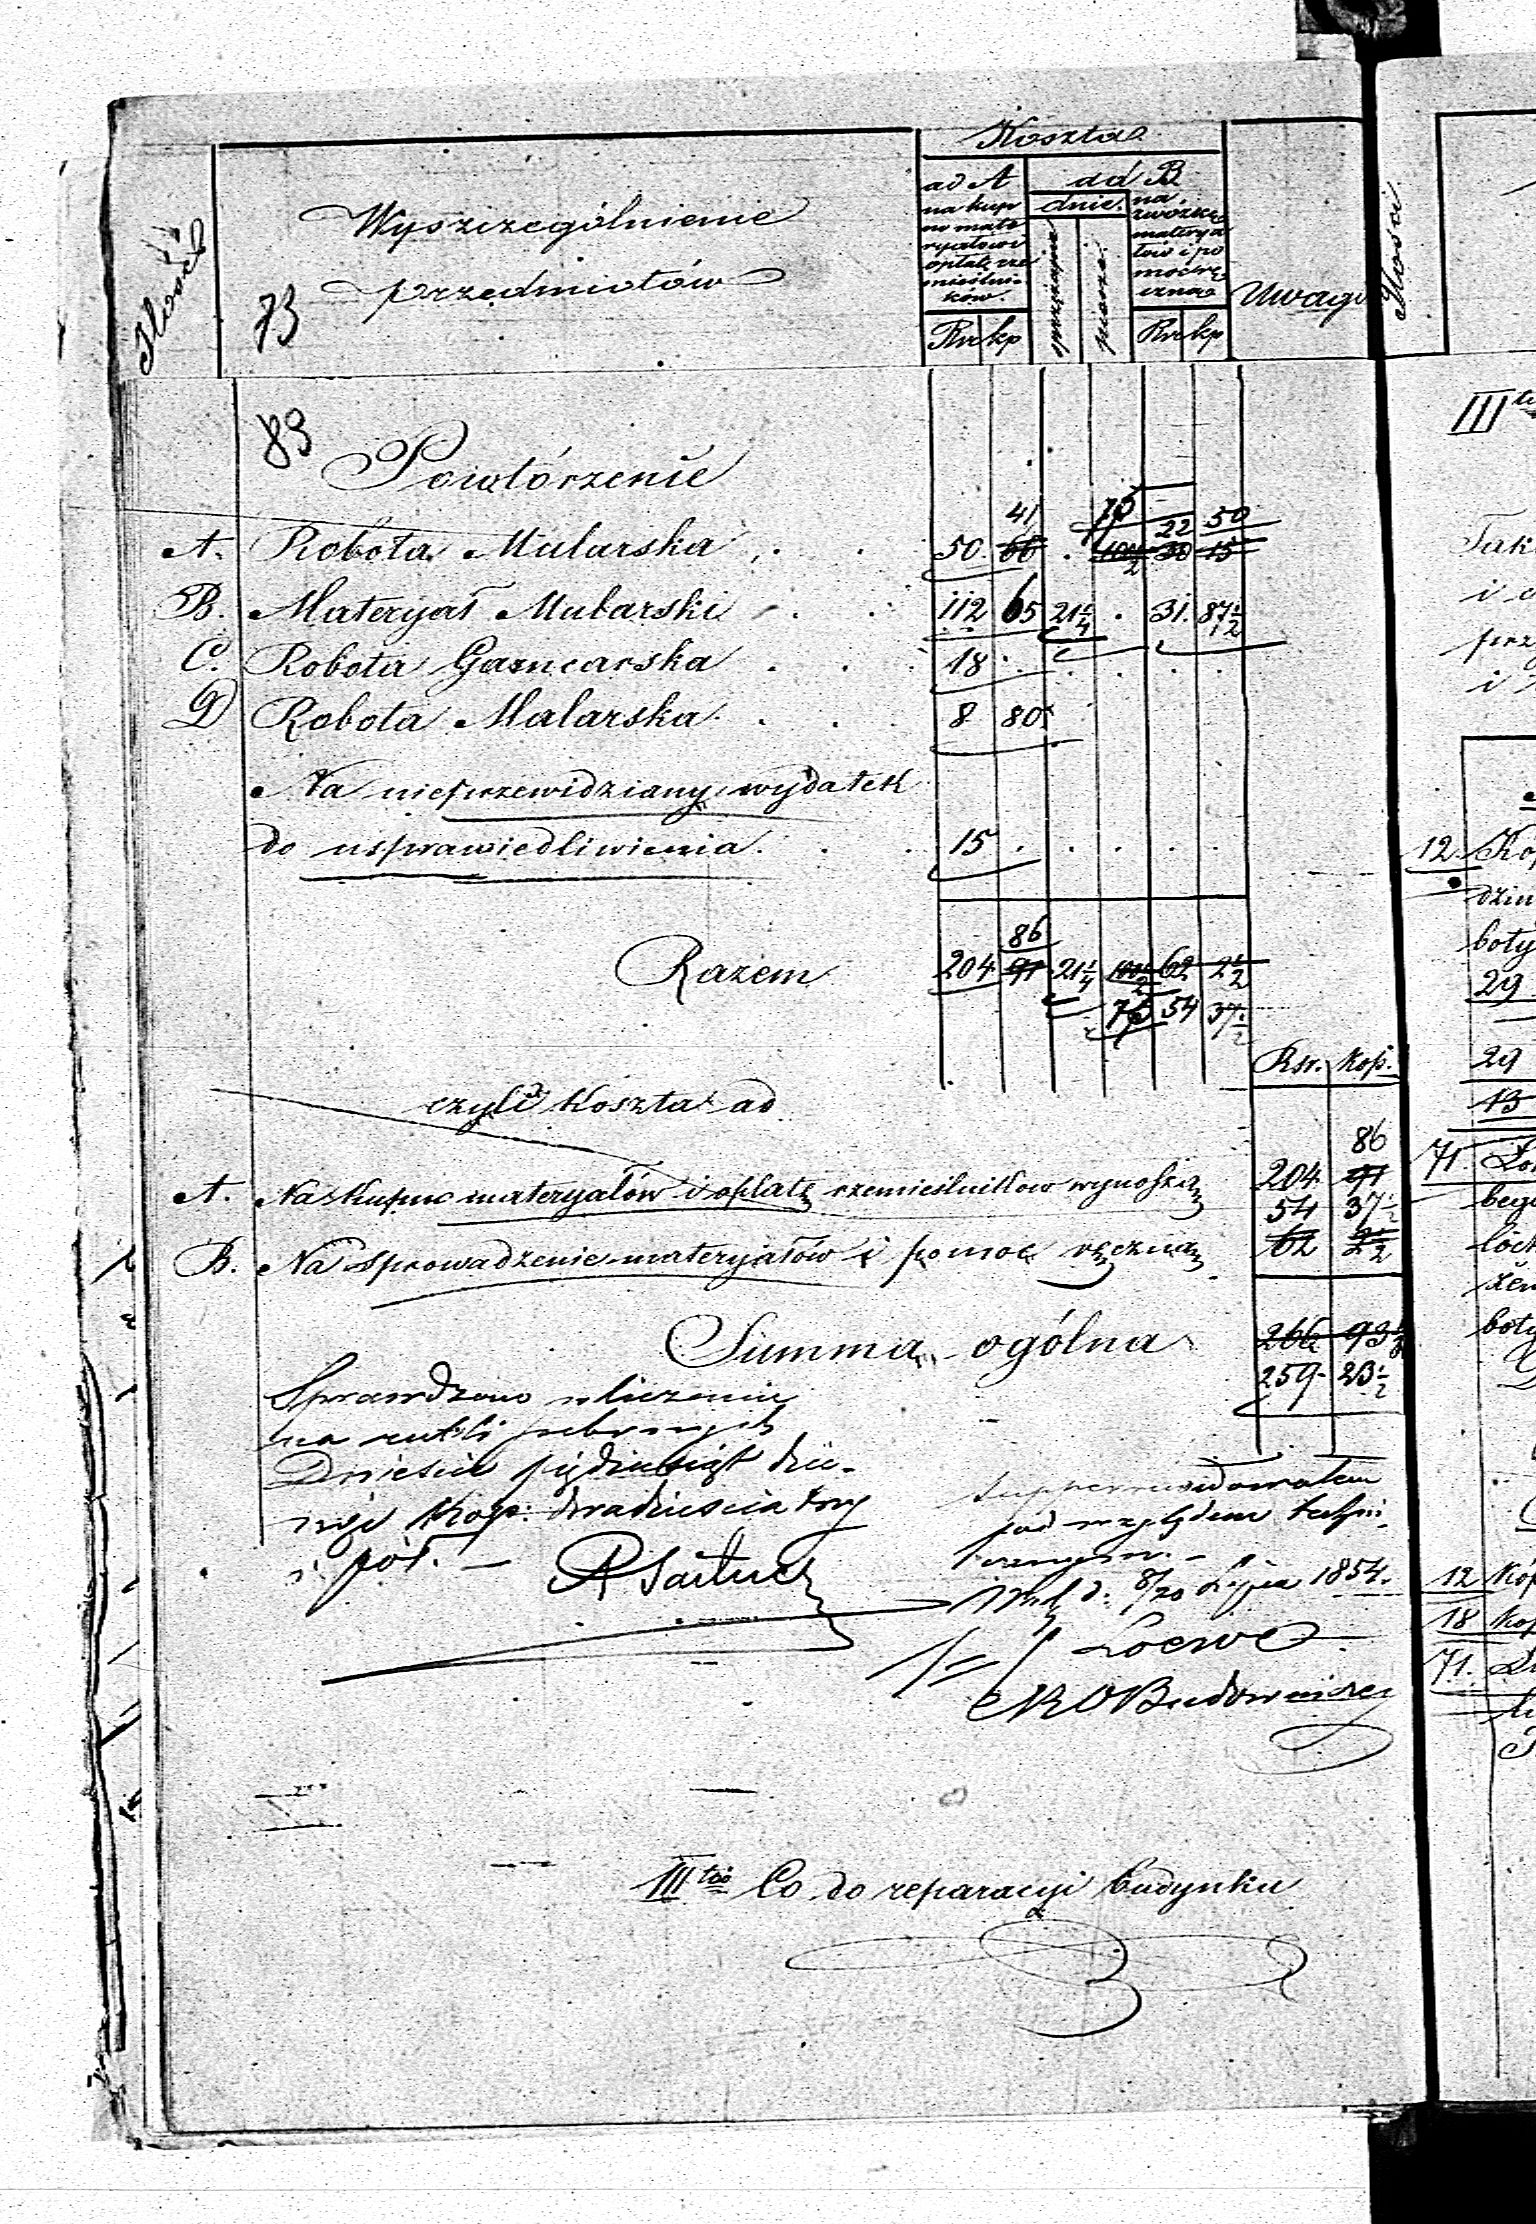 Ilość
73
Wyszczególnienie
przedmiotów
Koszta
ad A
na kupno mate
ryałów i
opłatę rze
mieślni-
ków.
Rsr kp
ad B
dnie
sprzężajne
piesze
na
zwózkę
materya
łów i po
moc rę
czna
Rsr kp
Uwagi
83
Powtórzenie
A. Robota Mularska 50. 66 41 . 100½ 75 30 15 22 50
B. Materyał Mularski 112 65 21¼ . 31. 87½
C. Robota Garncarska 18 . . . . .
D Robota Malarska 8 80
Na nieprzewidziany wydatek
do usprawiedliwienia 15 . . . . .
Razem 204 91 86 21¼ 100½ 62 2½
75 54 37½
Rsr. Kop.
czyli Koszta ad
A. Na Kupno materyałów i opłatę rzemieślników wynoszą 204 91 86
54 37½
B. Na Sprowadzenie materyałów i pomoc ręczną 62 2½
Summa ogólna 266 93½
259 23½
Sprawdzono w liczeniu
na rubli srebrnych
Dwieście pięćdziesiąt dzie-
więć Kop: dwadzieścia trzy
i pół. –
pod względem techni-
cznym. –
d. 8/20 Lipca 1854.
Loewe
Budowniczy
III tio Co do reparacyi budynku
Ilości
III
12. Ko
29
29
13
71.
12 Kop
18 Kop
71.